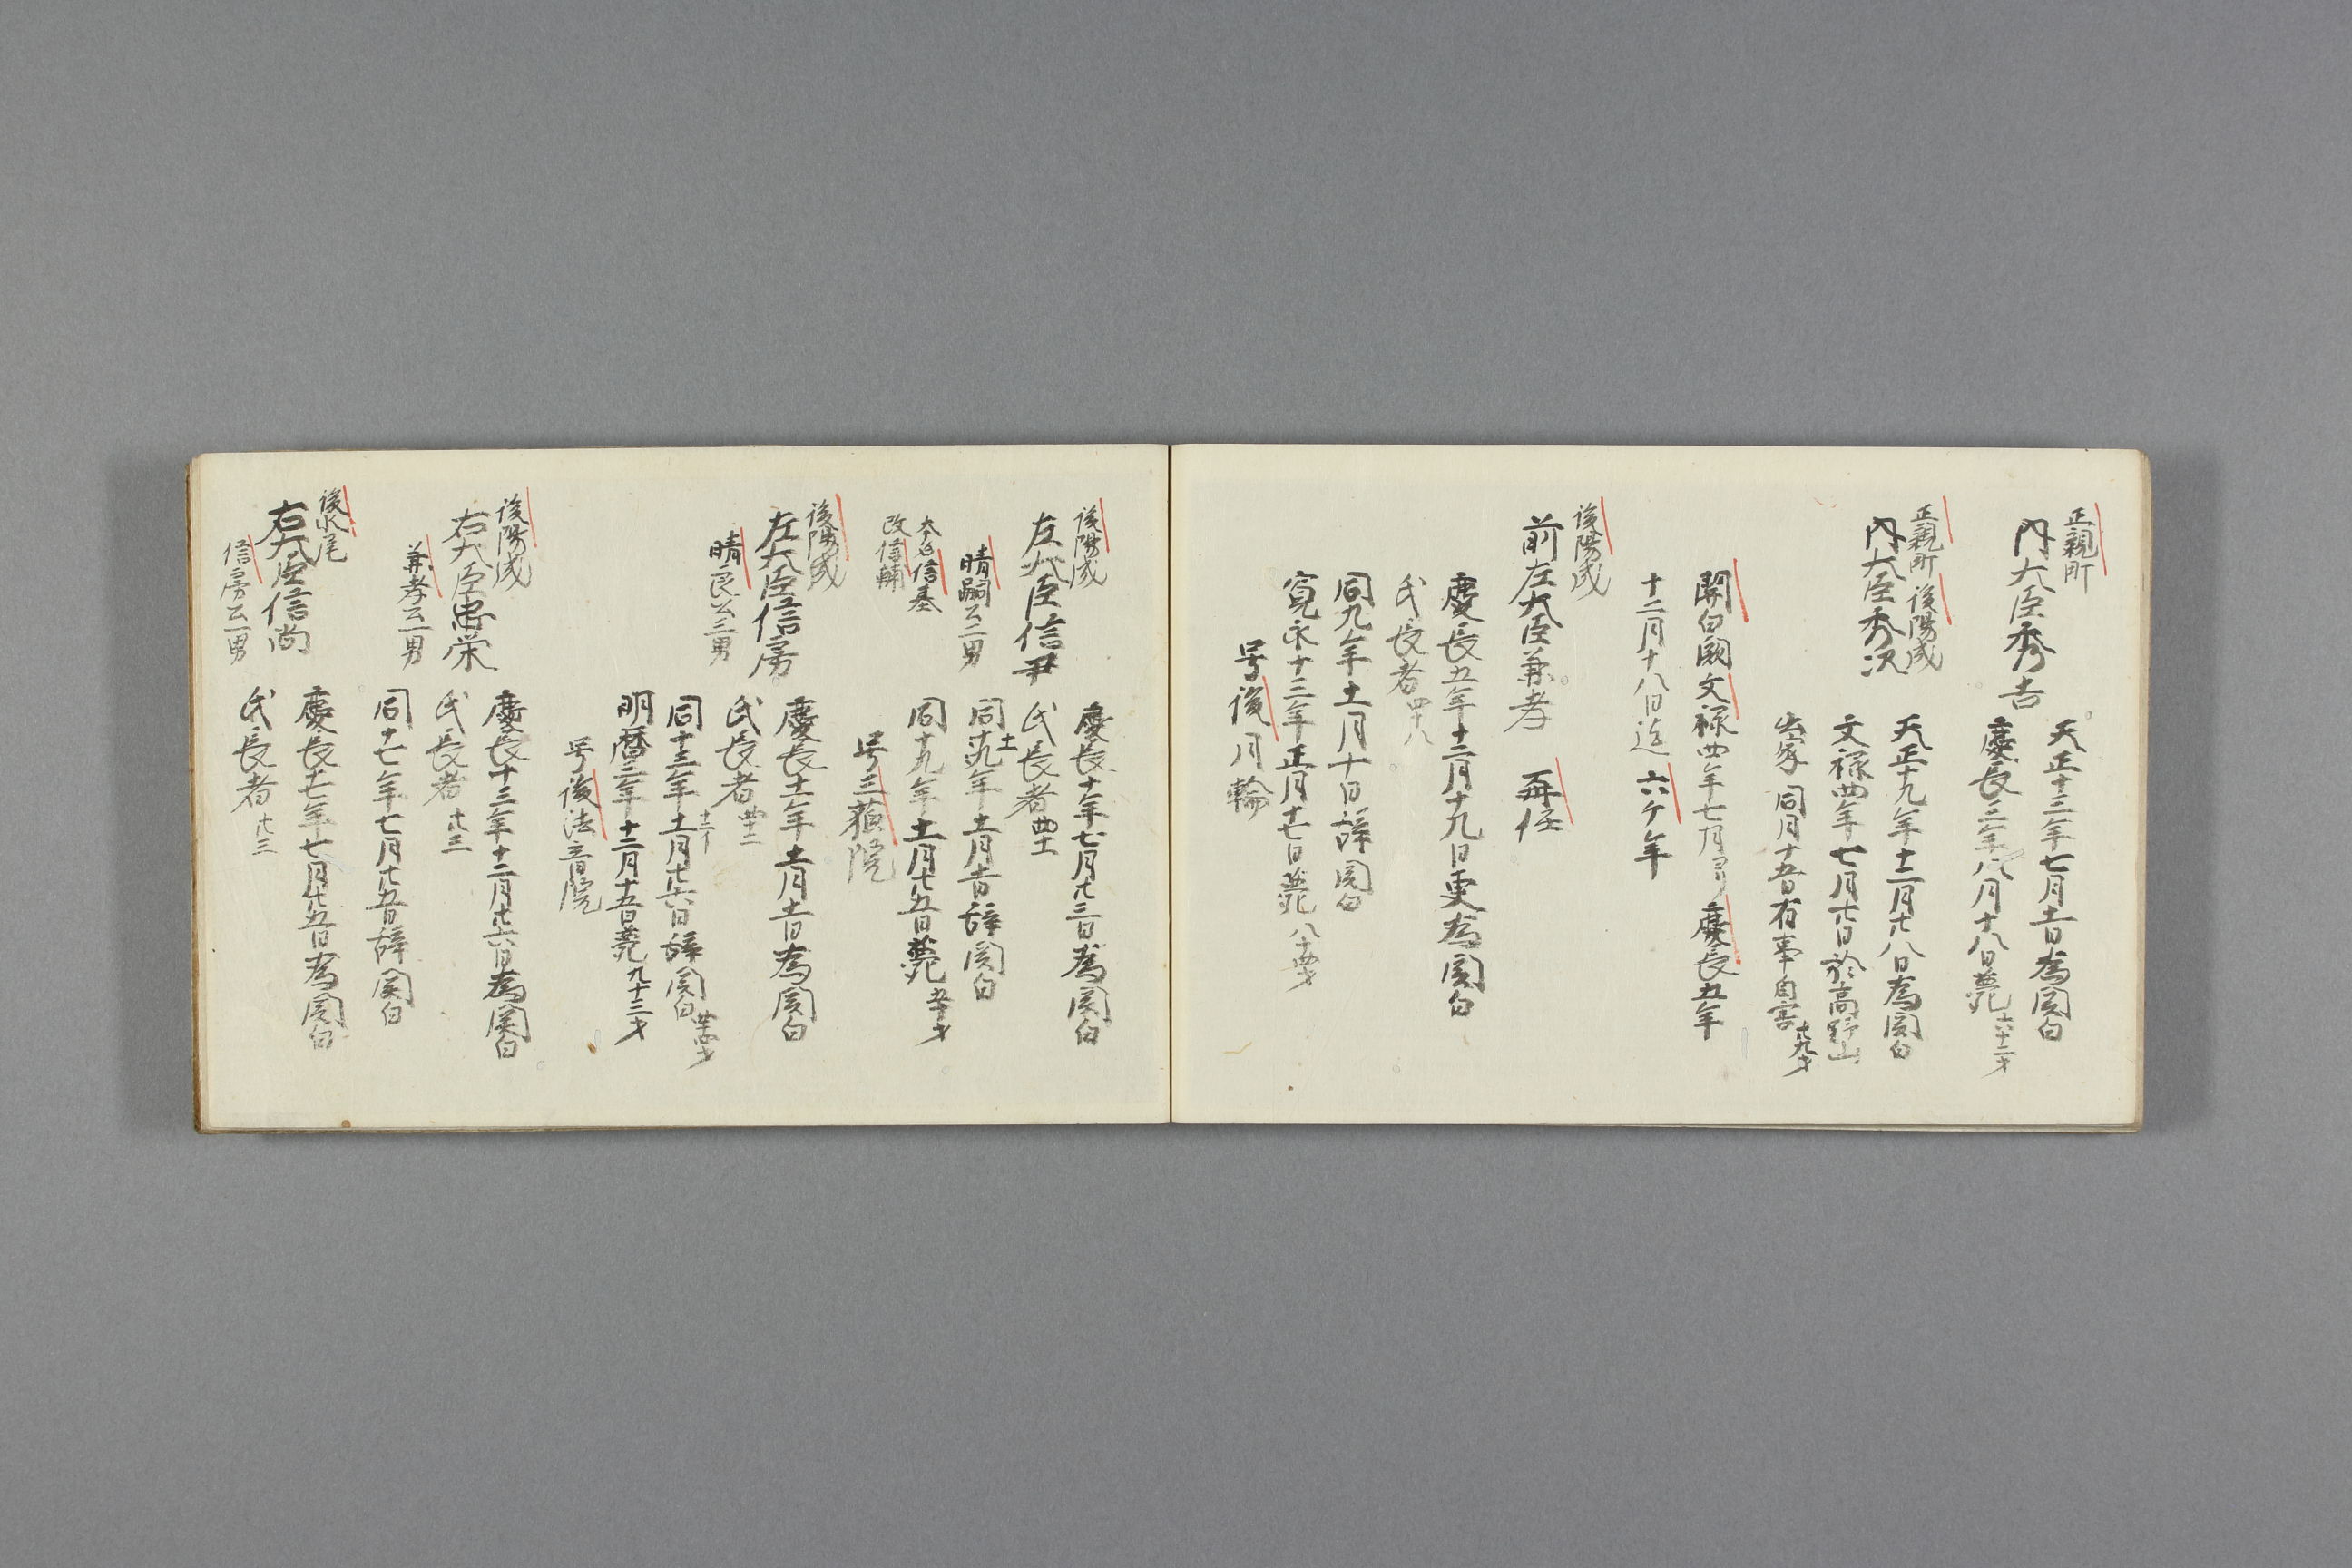 正親町
内大臣秀吉
天正十三年七月十一日為関白
慶長三年八月十八日薨 六十二才
正親町 後陽成
内大臣秀次
天正十九年十二月廿八日為関白
文禄四年七月廿日於高野山
出家 同月十五日有事自害 廿九才
関白闕文禄四年七月ヨリ慶長五年
十二月十八日迄 六ケ年
後陽成
前左大臣兼孝 再任
慶長五年十二月十九日更為関白
氏長者 四十八
同九年十一月十日辞関白
寛永十三年正月十七日薨 八十四才
号後月輪
後陽成
左大臣信尹
晴嗣公二男
本名信基
改信輔
慶長十年七月廿三日為関白
氏長者 四十一
同十九年十一月十一日辞関白
十一
同十九年十一月廿五日薨 五十才
号三藐院
後陽成
左大臣信房
晴良公三男
慶長十一年十一月十一日為関白
氏長者 四十二
同十三年十一月廿六日辞関白 四十四才
十二イ
明暦三年十二月十五日薨 九十三才
号後法音院
後陽成
右大臣忠栄
兼孝公一男
慶長十三年十二月廿六日為関白
氏長者 廿三
同十七年七月廿五日辞関白
後水尾
右大臣信尚
信房公一男
慶長十七年七月廿五日為関白
氏長者 廿三